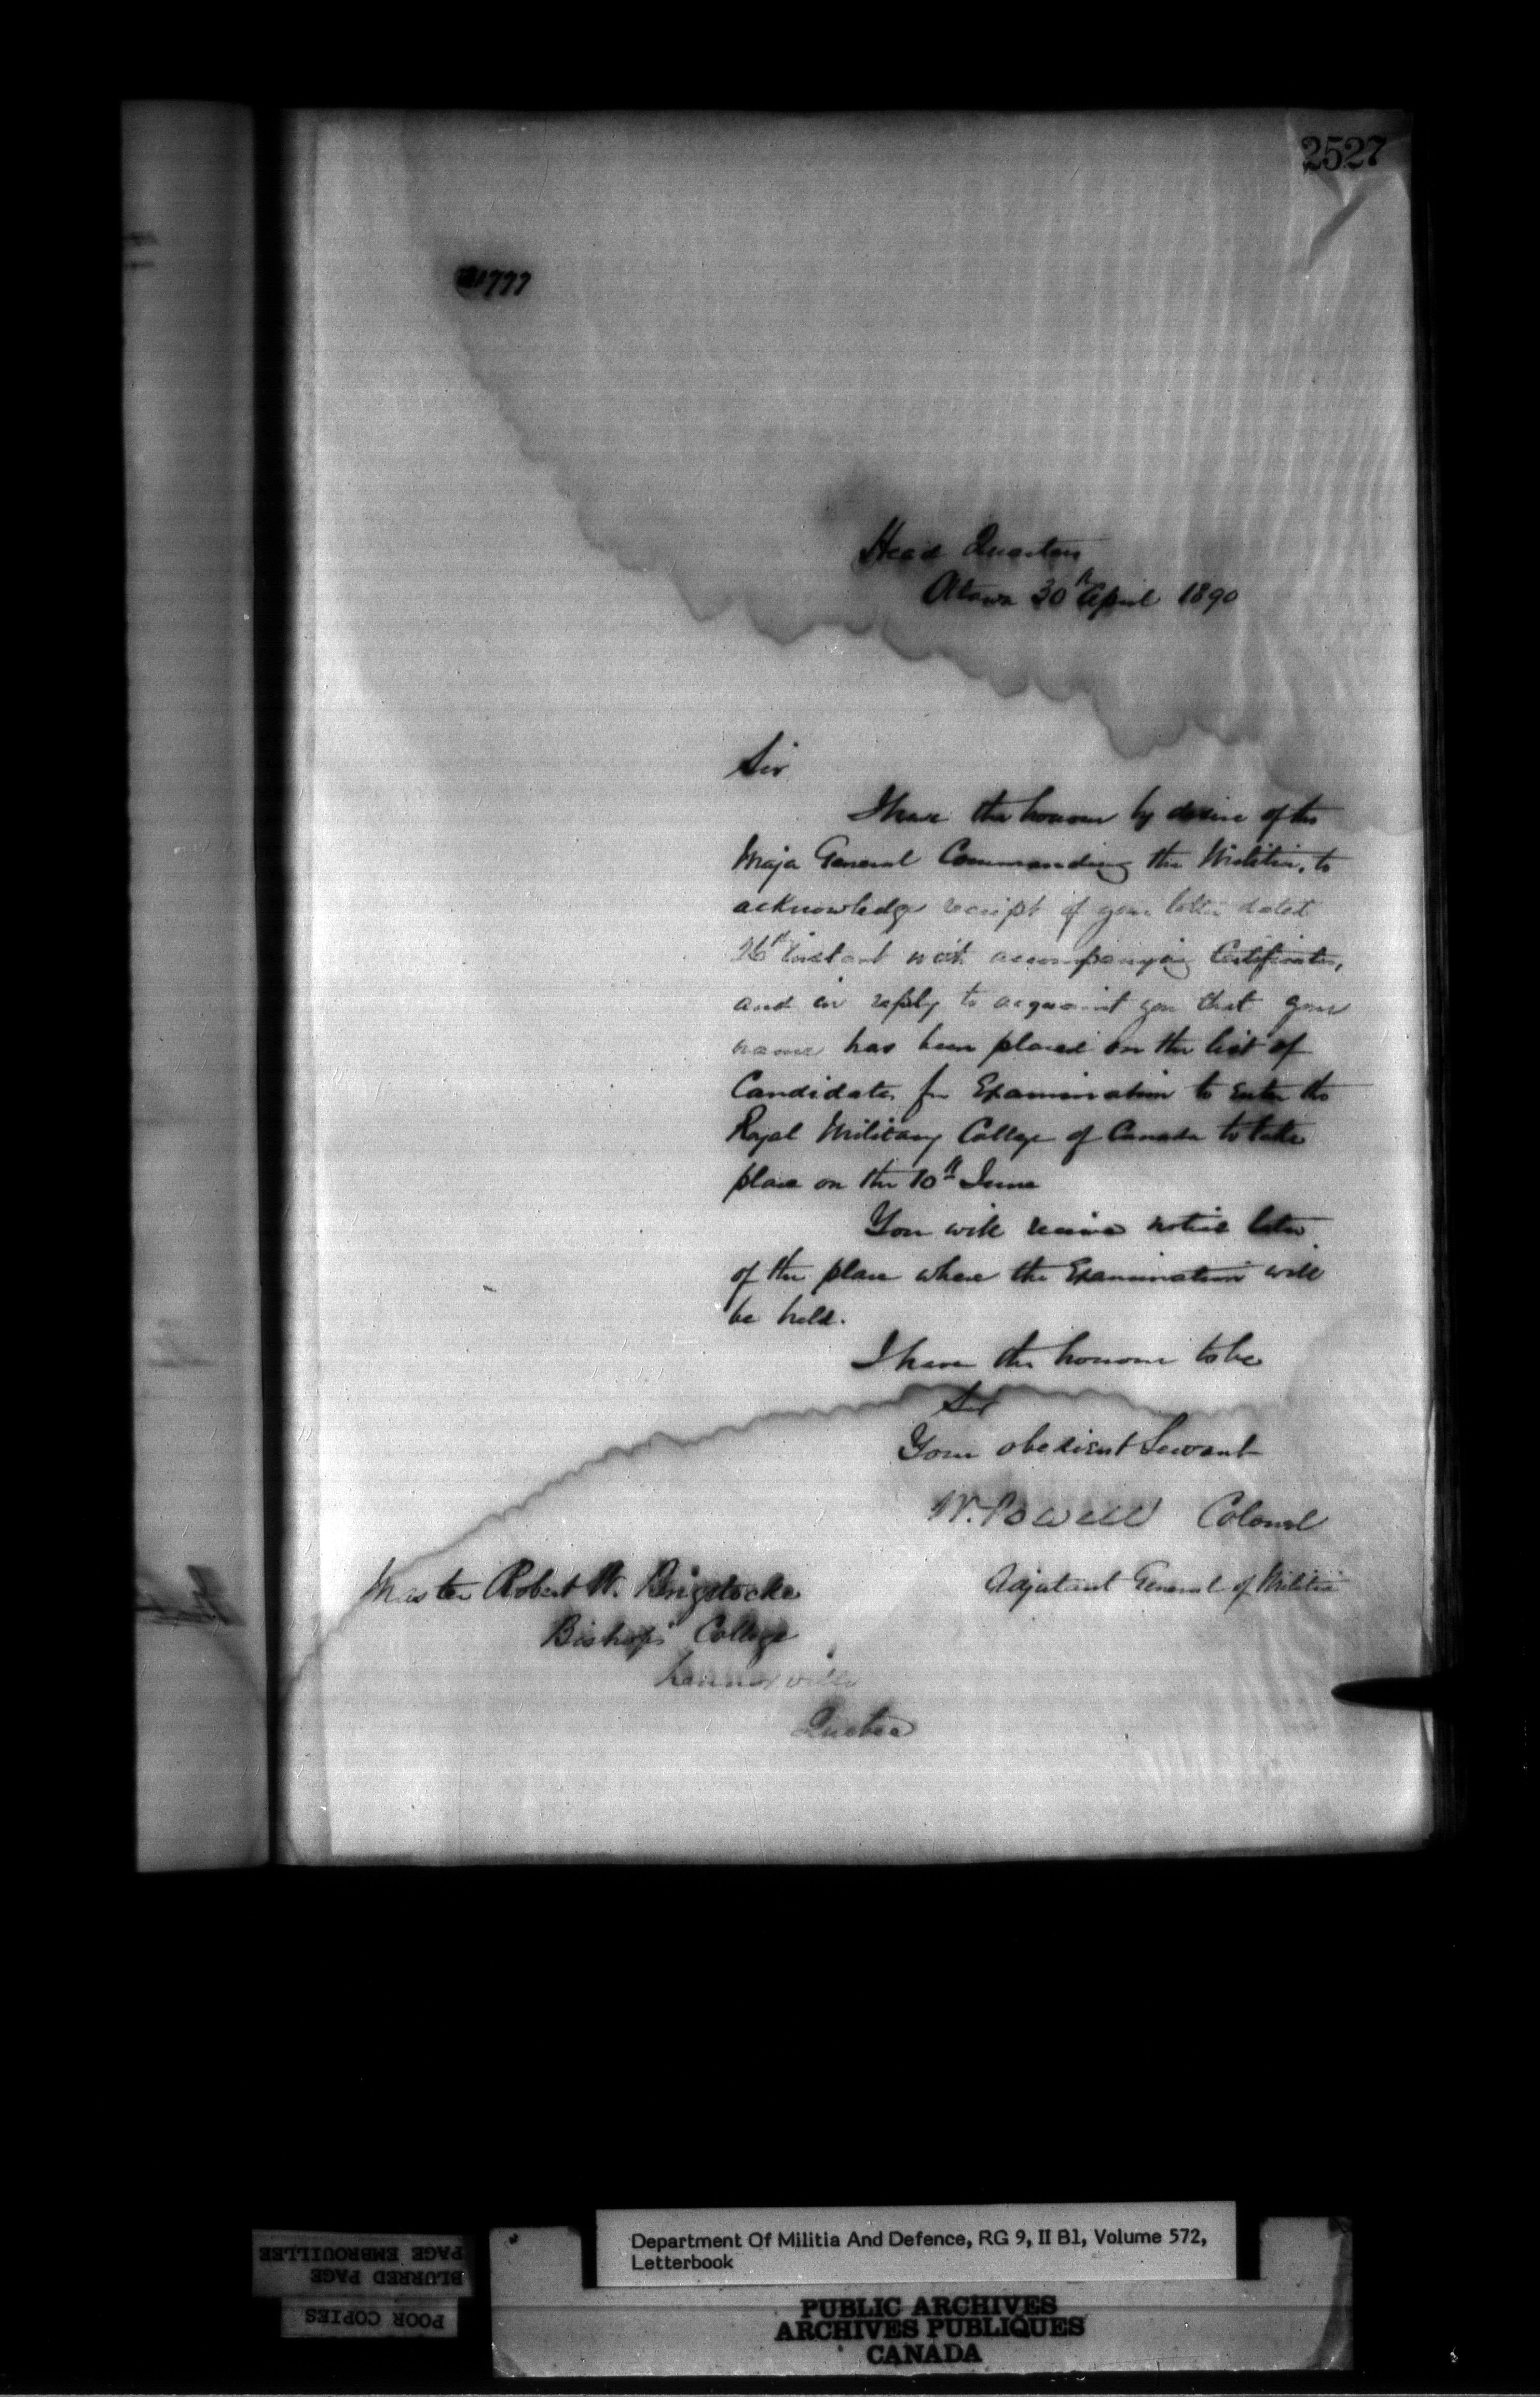 2527
1777
Head Quarters
Ottawa 30th April 1890
Sir
I have the honour by desire of the
Major General Commanding the Militia, to
acknowledge receipt of your letter dated
26th Instant with accompanying Certificates,
and in reply to acquaint you that your
name has been placed on the list of
Candidates for Examination to enter the
Royal Military College of Canada to take
place on the 10th June
You will receive notice later
of the place where the Examination will
be held.
I have the honour to be
Sir
Your obedient Servant
W. Powell Colonel
Adjutant General of Militia
Master Robert W. Brigstocke
Bishops College
Lennoxville
Quebec
Department Of Militia And Defence, RG 9, II B1, Volume 572,
Letterbook
PUBLIC ARCHIVES
ARCHIVES PUBLIQUES
CANADA
POOR COPIES
BLURRED PAGE
PAGE EMBROUILLEE